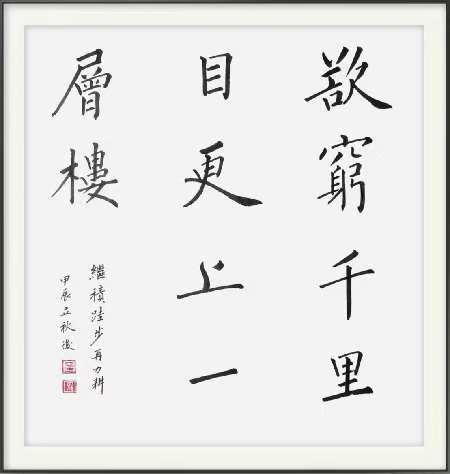 欲窮千里
目更上一
層樓
繼積跬步再力耕
甲辰立秋